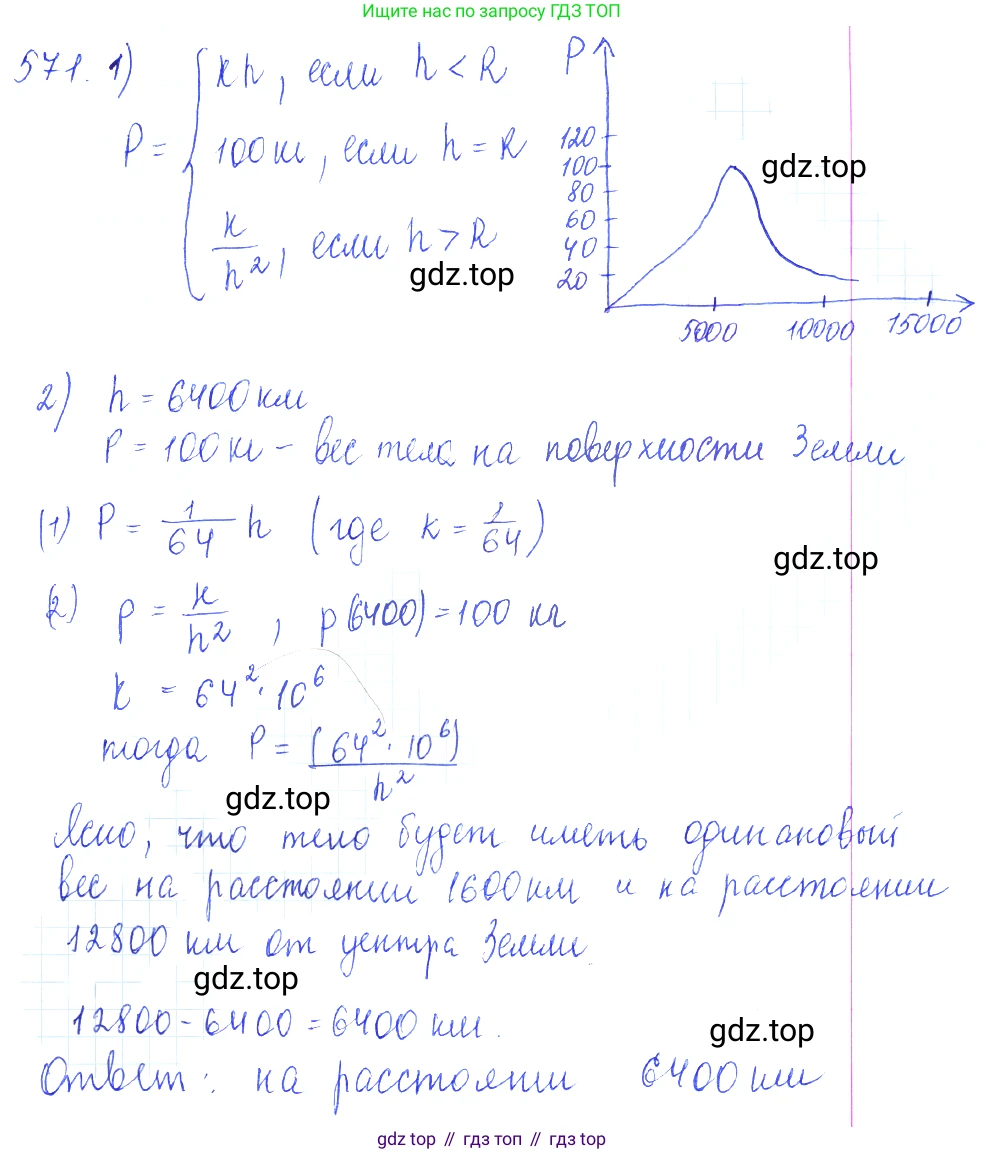 Ищите нас по запросу ГДЗ ТОП
571. 1)
P = { kh, если h < R
100 кг, если h = R
k/h², если h > R
gdz.top
P
120
100
80
60
40
20
5000 10000 15000
gdz.top
2) h = 6400 км
P = 100 кг – вес тела на поверхности Земли
(1) P = 1/64 h (где k = 1/64)
gdz.top
(2) P = k/h², p(6400) = 100 кг
k = 64² · 10⁶
тогда P = (64² · 10⁶)/h²
gdz.top
Ясно, что тело будет иметь одинаковый
вес на расстоянии 1600 км и на расстоянии
12800 км от центра Земли.
gdz.top
12800 – 6400 = 6400 км.
gdz.top
Ответ: на расстоянии 6400 км
gdz top // гдз топ // gdz top